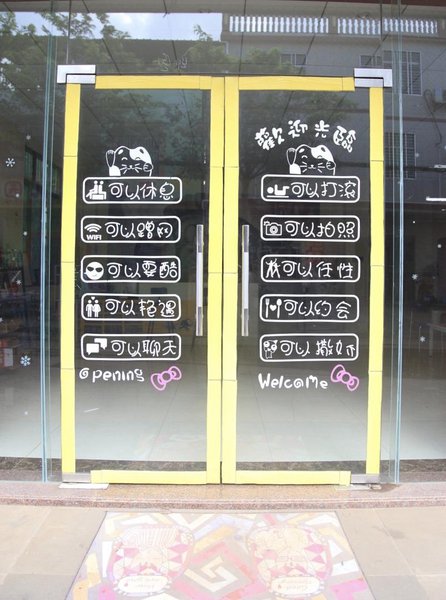 可以休息
WIFI 可以蹭网
可以耍酷
可以艳遇
可以聊天
Opening
歡迎光臨
可以打滚
可以拍照
可以任性
可以约会
可以撒娇
Welcome